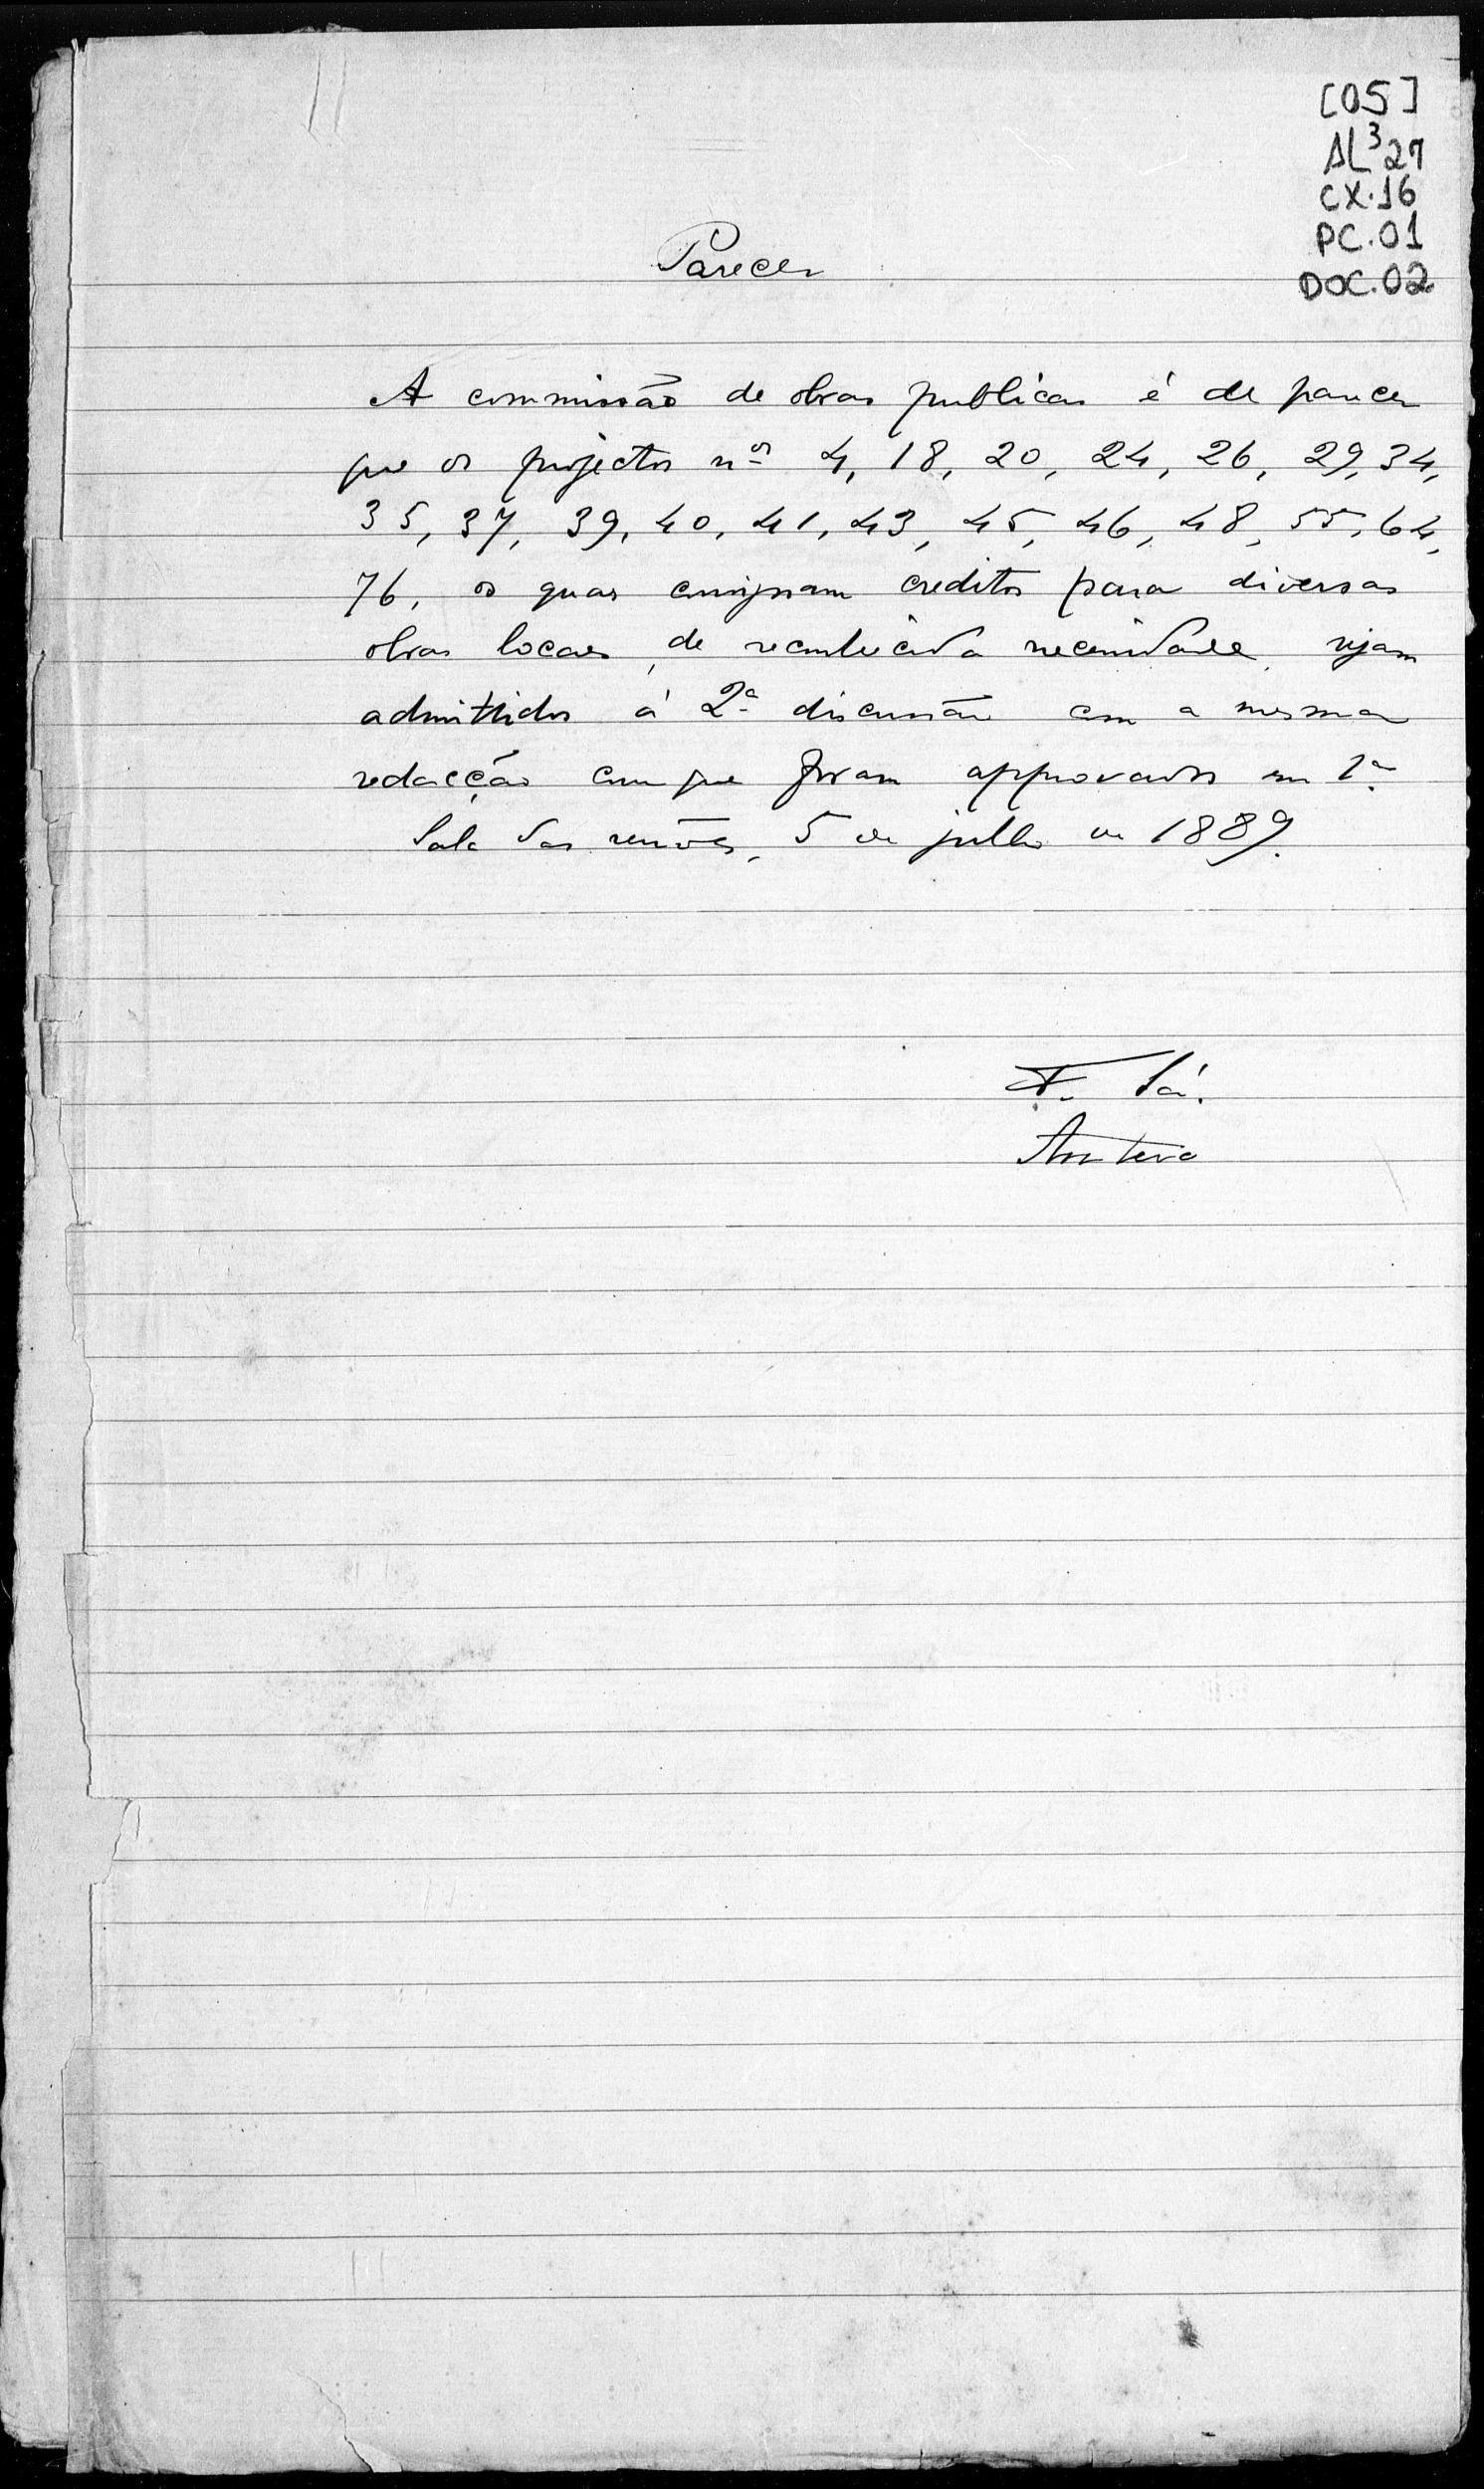 [05]
AL³27
CX.16
PC.01
DOC.02
Parecer
A commissão de obras publicas é de parecer
que os projectos nos 4, 18, 20, 24, 26, 29, 34,
35, 37, 39, 40, 41, 43, 45, 46, 48, 55, 64,
76, os quaes consignam creditos para diversas
obras locaes, de reconhecida necessidade, sejam
admittidos á 2ª discussão com a mesma
redacção com que foram approvados em 1ª.
Sala das sessões, 5 de julho de 1889.
F. Sá.
Antero